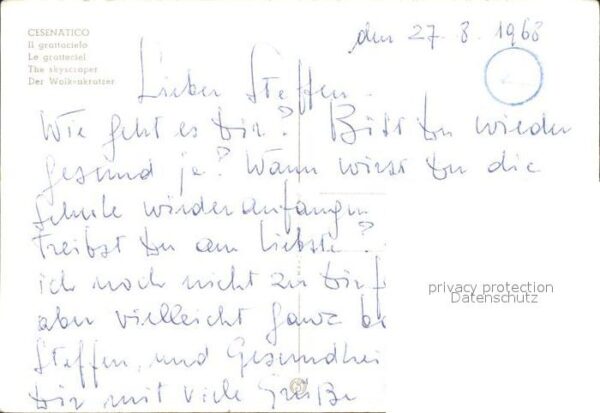 CESENATICO
Il grattacielo
Le grattaciel
The skyscraper
Der Wolk-nkratzer
den 27. 8. 1968
Lieber Steffen
Wie geht es Dir? Bist Du wieder
gesund ja? Wann wirst Du die
Schule wieder anfangen
Treibst Du am liebste?
ich noch nicht zu Dir
aber vielleicht ganz
Steffen, und Gesundhei
Dir mit viele Grüße
privacy protection
Datenschutz